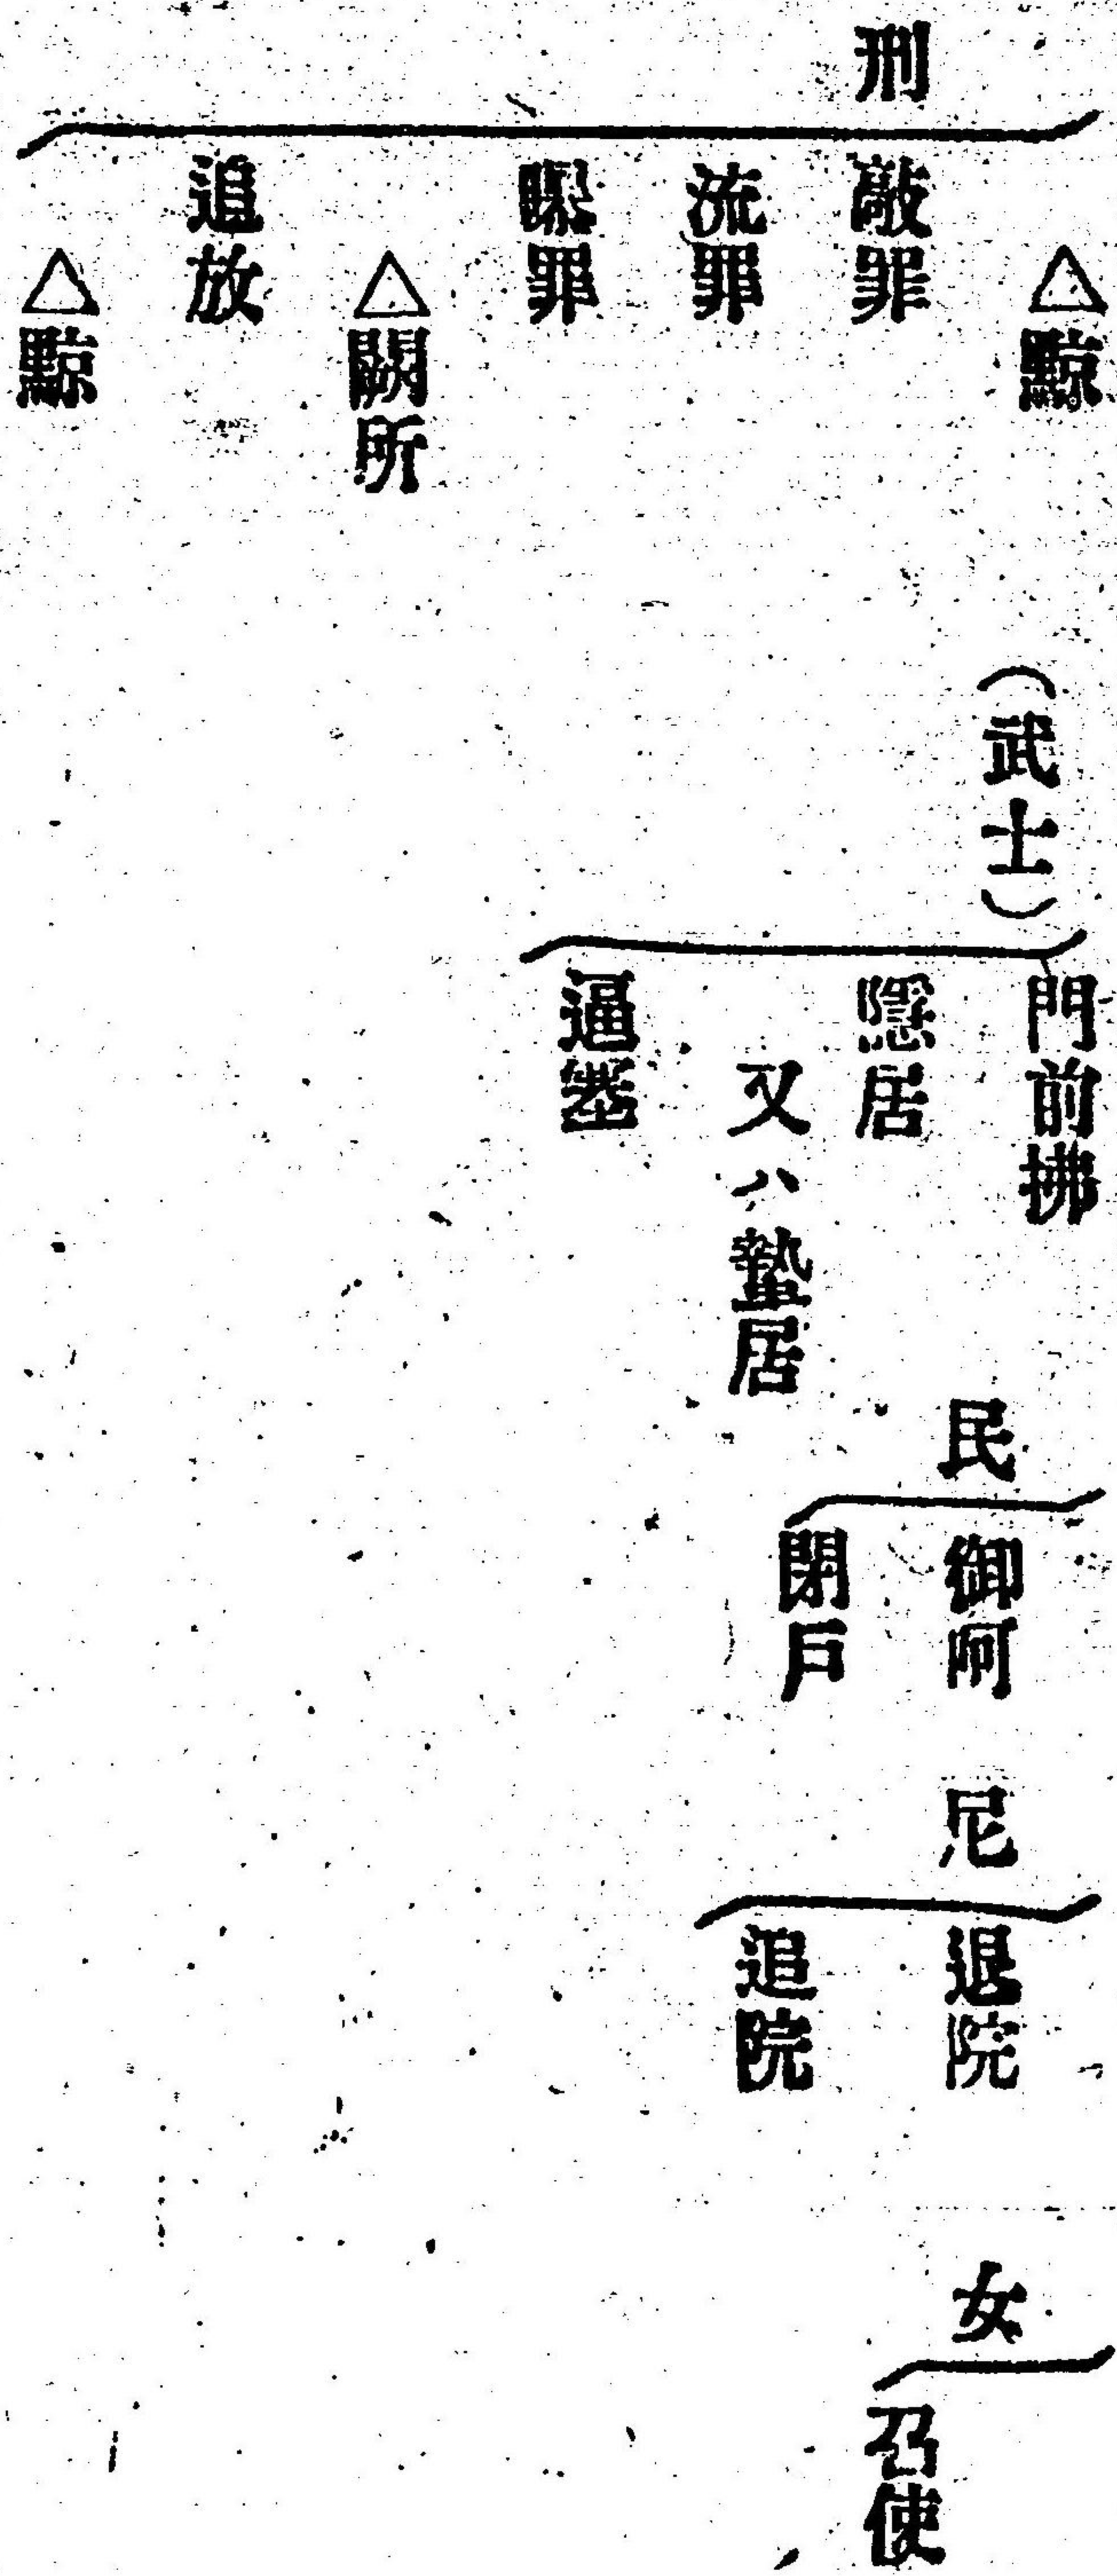 刑
△黥
敲罪
流罪
曝罪
△闕所
追放
△黥
(武士)
門前拂
隱居
又ハ蟄居
逼塞
民
御呵
閉戸
尼
退院
追院
女
召使